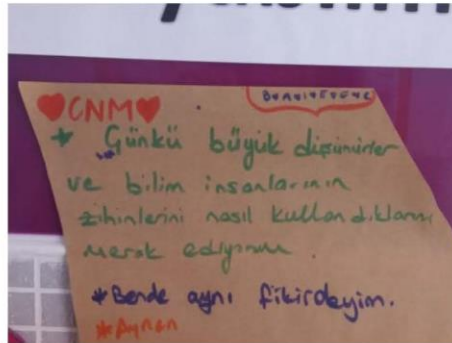 ♥CNM♥
* Günkü büyük düşünürler
ve bilim insanlarının
zihinlerini nasıl kullandıklarını
merak ediyorum.
*Bende aynı fikirdeyim.
*Aynen